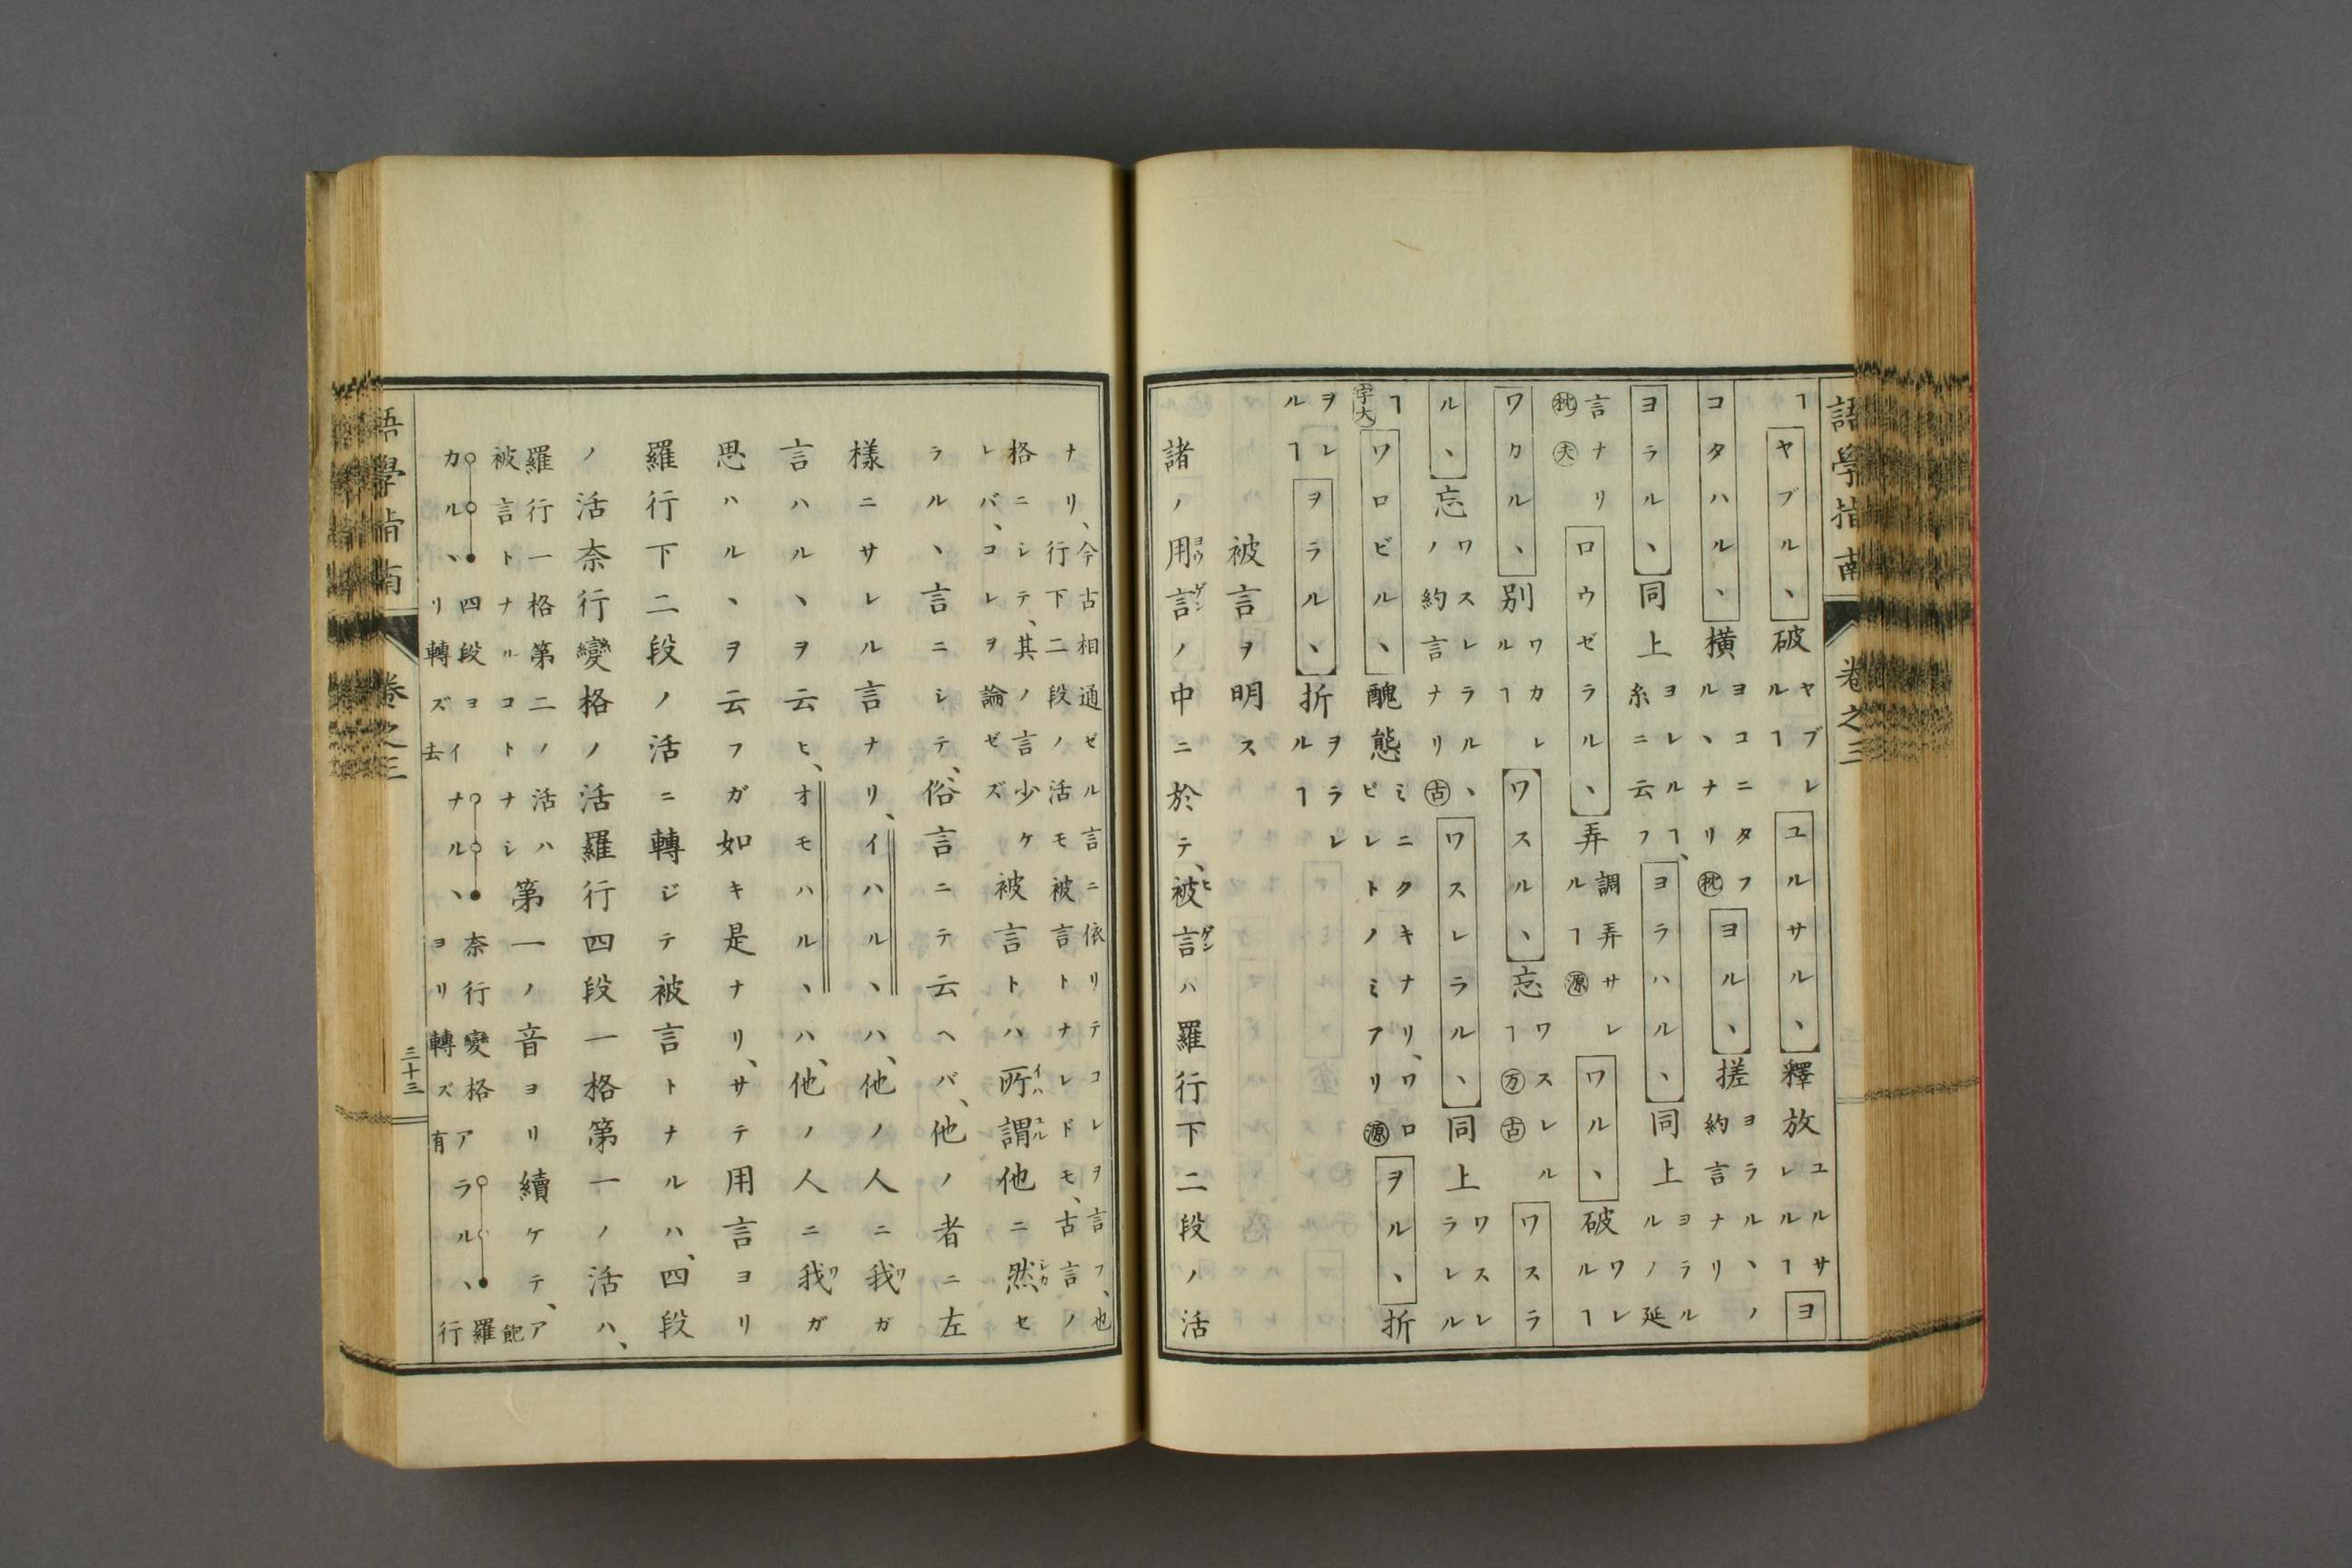 語學指南 卷之三
ヿヤブルヽ破ヤブレルヿユルサルヽ釋放ユルサレルヿヨ
コタハルヽ横ヨコニタフルヽナリ枕ヨルヽ搓ヨラルヽノ約言ナリ
ヨラルヽ同上ヨレルヿ、糸ニ云フヨラハルヽ同上ヨラルルノ延
言ナリ枕大ロウゼラルヽ弄調弄サレルヿ源ワルヽ破ワレルヿ
ワカルヽ別ワカレルヿワスルヽ忘ワスレルヿ万古ワスラ
ルヽ忘ワスレラルヽノ約言ナリ古ワスレラルヽ同上ワスレラレル
ヿ字大ワロビルヽ醜態ミニクキナリ、ワロビレトノミアリ源ヲルヽ折
ヲレルヿヲラルヽ折ヲラレルヿ
被言ヲ明ス
諸ノ用言ノ中ニ於テ、被言ハ羅行下二段ノ活
ナリ、今古相通ゼル言ニ依リテコレヲ言フ、也行下二段ノ活モ被言トナレドモ、古言ノ
格ニシテ、其ノ言少ケレバ、コレヲ論ゼズ被言トハ所謂他ニ然セ
ラルヽ言ニシテ、俗言ニテ云ヘバ、他ノ者ニ左
樣ニサレル言ナリ、イハルヽハ、他ノ人ニ我ガ
言ハルヽヲ云ヒ、オモハルヽハ、他ノ人ニ我ガ
思ハルヽヲ云フガ如キ是ナリ、サテ用言ヨリ
羅行下二段ノ活ニ轉ジテ被言トナルハ、四段
ノ活奈行變格ノ活羅行四段一格第一ノ活ハ、
羅行一格第二ノ活ハ被言トナルコトナシ第一ノ音ヨリ續ケテ、ア飽
カルヽ四段ヨリ轉ズイ去ナルヽ奈行變格ヨリ轉ズア有ラルヽ羅行
語學指南 卷之三 三十三